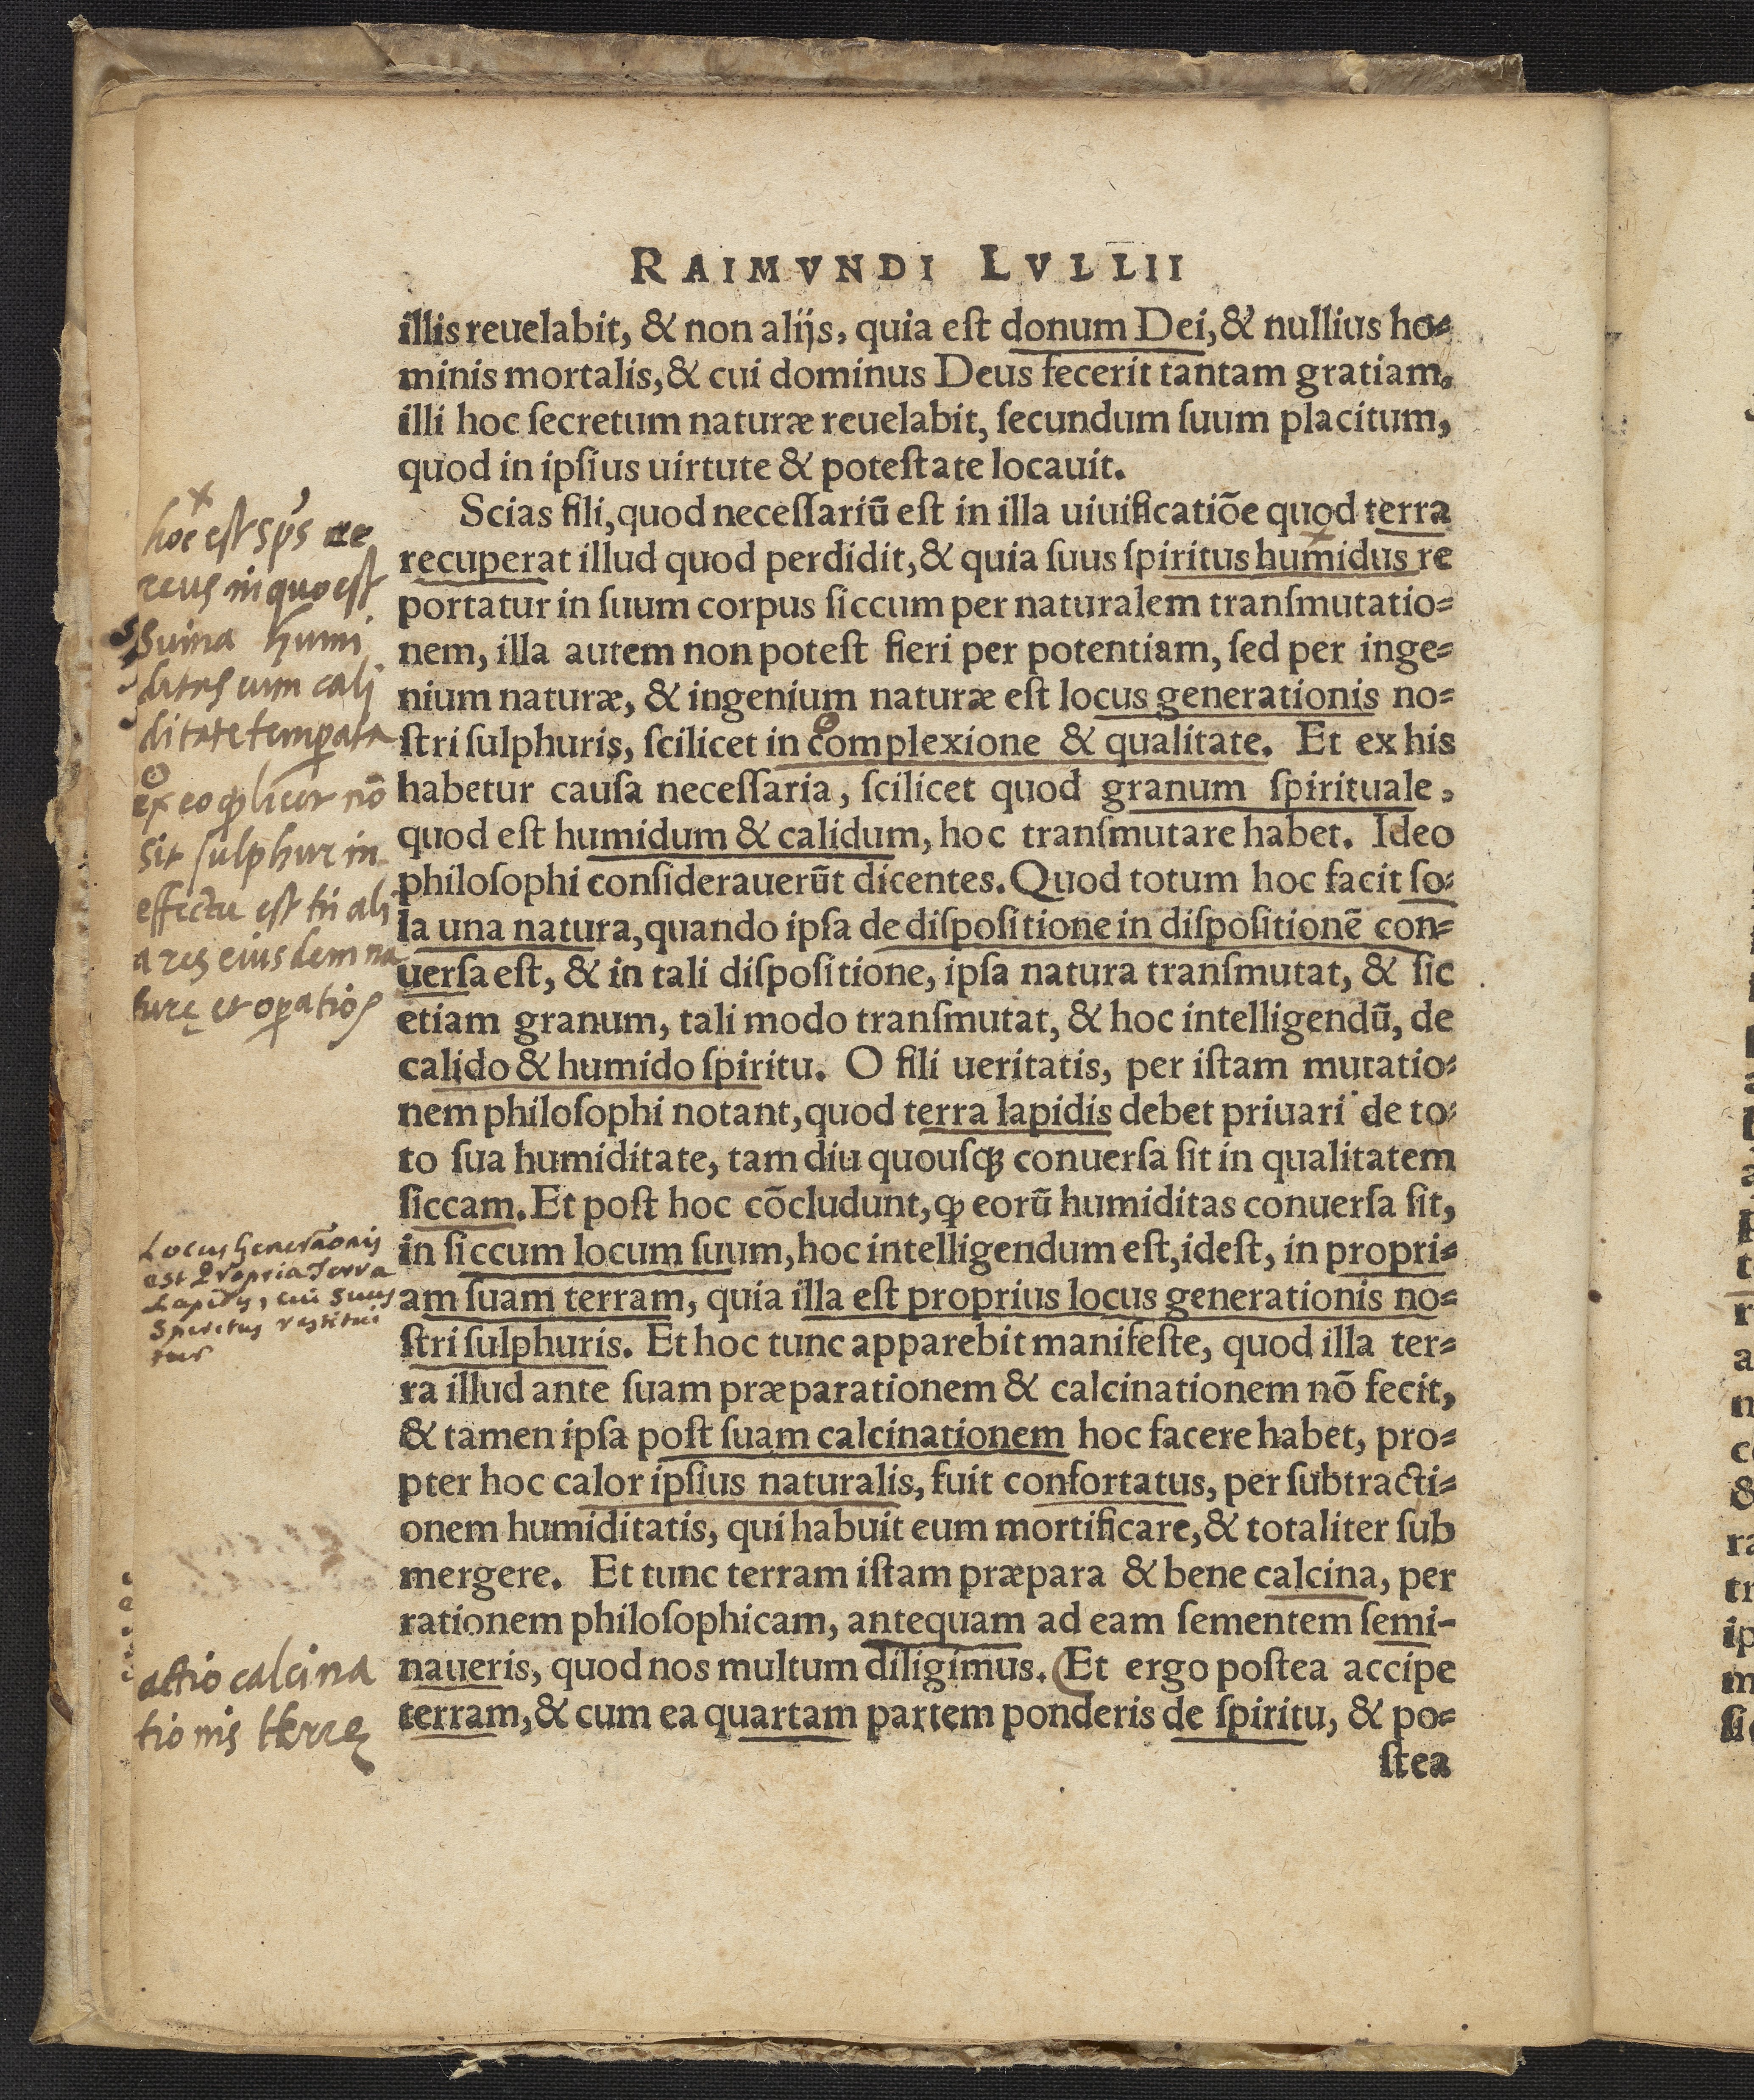 RAIMVNDI LVLLII
illis reuelabit, & non alijs, quia eſt donum Dei, & nullius ho⸗
minis mortalis, & cui dominus Deus fecerit tantam gratiam,
illi hoc ſecretum naturæ reuelabit, ſecundum ſuum placitum,
quod in ipſius uirtute & poteſtate locauit.
Scias fili, quod neceſſariũ eſt in illa uiuificatiõe quod terra
recuperat illud quod perdidit, & quia ſuus ſpiritus humidus re
portatur in ſuum corpus ſiccum per naturalem tranſmutatio⸗
nem, illa autem non poteſt fieri per potentiam, ſed per inge⸗
nium naturæ, & ingenium naturæ eſt locus generationis no⸗
ſtri ſulphuris, ſcilicet in complexione & qualitate. Et ex his
habetur cauſa neceſſaria, ſcilicet quod granum ſpirituale,
quod eſt humidum & calidum, hoc tranſmutare habet. Ideo
philoſophi conſiderauerũt dicentes. Quod totum hoc facit ſo⸗
la una natura, quando ipſa de diſpoſitione in diſpoſitionẽ con⸗
uerſa eſt, & in tali diſpoſitione, ipſa natura tranſmutat, & ſic
etiam granum, tali modo tranſmutat, & hoc intelligendũ, de
calido & humido ſpiritu. O fili ueritatis, per iſtam mutatio⸗
nem philoſophi notant, quod terra lapidis debet priuari de to⸗
to ſua humiditate, tam diu quouſqꝫ conuerſa ſit in qualitatem
ſiccam. Et poſt hoc cõcludunt, ꝙ eorũ humiditas conuerſa ſit,
in ſiccum locum ſuum, hoc intelligendum eſt, ideſt, in propri⸗
am ſuam terram, quia illa eſt proprius locus generationis no⸗
ſtri ſulphuris. Et hoc tunc apparebit manifeſte, quod illa ter⸗
ra illud ante ſuam præparationem & calcinationem nõ fecit,
& tamen ipſa poſt ſuam calcinationem hoc facere habet, pro⸗
pter hoc calor ipſius naturalis, fuit confortatus, per ſubtracti⸗
onem humiditatis, qui habuit eum mortificare, & totaliter ſub
mergere. Et tunc terram iſtam præpara & bene calcina, per
rationem philoſophicam, antequam ad eam ſementem ſemi-
naueris, quod nos multum diligimus. (Et ergo poſtea accipe
terram, & cum ea quartam partem ponderis de ſpiritu, & po⸗
ſtea
hoc eſt sp̃s ae
reus in quo eſt
suma humi
ditas cum cali
ditate temperata
ex eo ꝙ licet nõ
sit ſulphur in
effectu est tñ ali
a res eiusdem na
turę et operatiõs
Locus Generãonis
est Propria Terra
Lapidis, cui Suus
Spiritus restitui
tur
actio calcina
tionis terrę